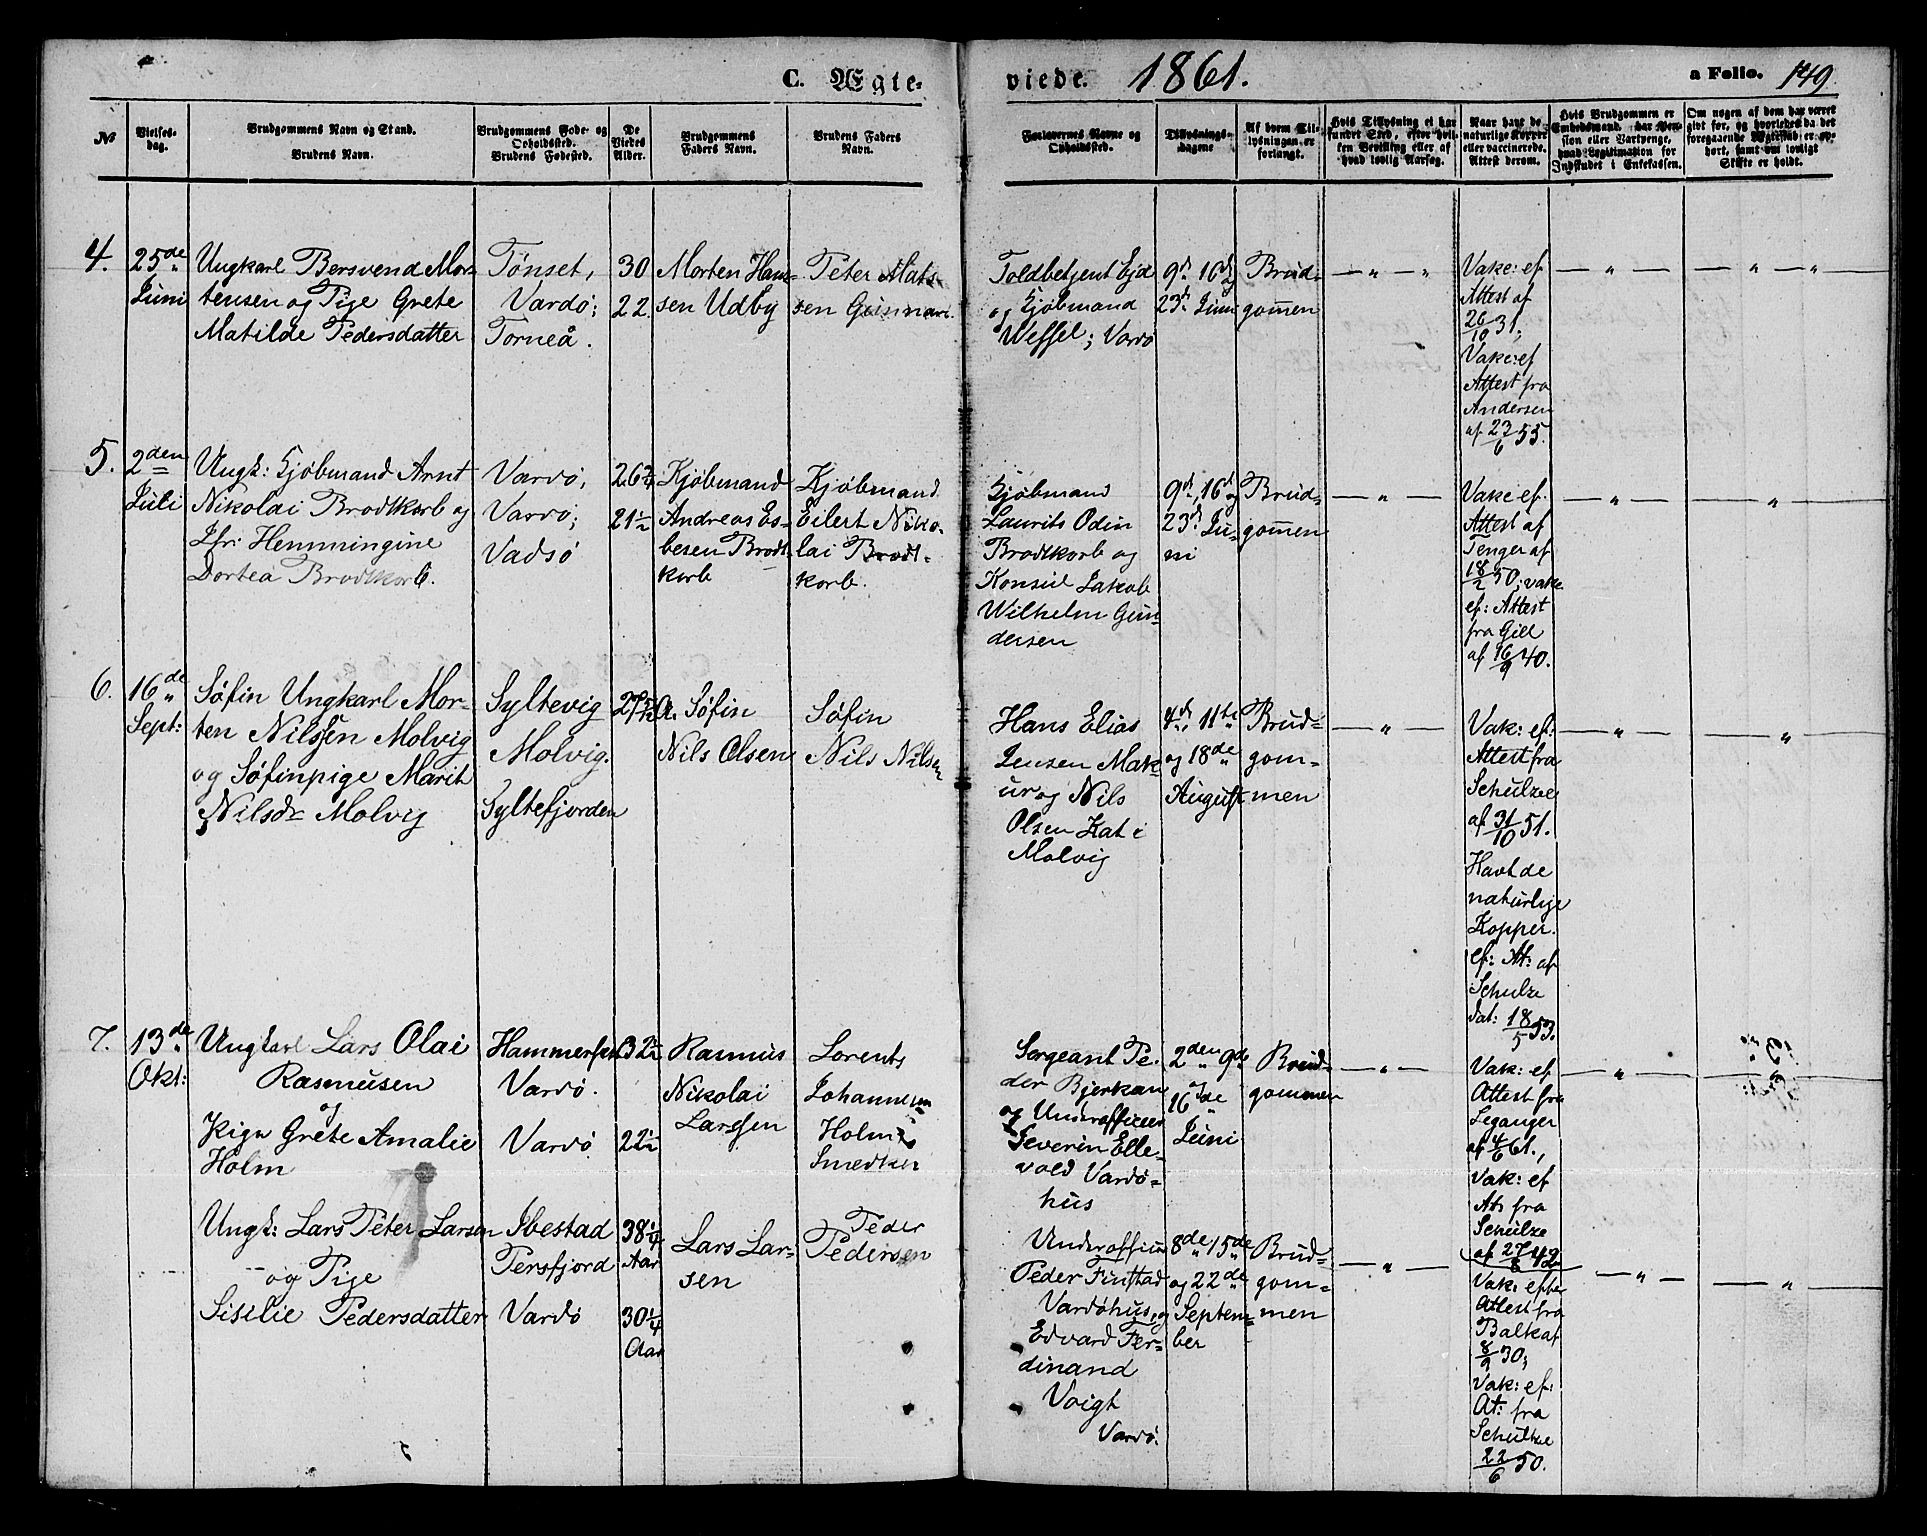 C. Ægte-
viede. 1861. a Folio. 149
№
Vielses-
dag.
Brudgommens Navn og Stand.
Brudens Navn.
Brudgommens Føde- og
Opholdssted.
Brudens Fødested.
De
Viedes
Alder.
Brudgommens
Faders Navn.
Brudens Faders
Navn.
Forlovernes Navne og
Opholdssted.
Tillysnings-
dagene
Af hvem Til-
lysningen er
forlangt.
Hvis Tillysning ei har
fundet Sted, efter hvil-
ken Bevilling eller af
hvad lovlig Aarsag.
Naar have de
naturlige Kopper
eller vaccinerede.
Attest derom.
Hvis Brudgommen er
Embedsmand, har Pen-
sion eller Vartpenge,
hvad Legitimation for
Indskudet i Enkekassen.
Om nogen af dem har været
gift før, og hvorledes da det
foregaaende Ægteskab er op-
hørt, samt om lovligt
Skifte er holdt.
4.
25de
Juni
Ungkarl Bersvend Mor-
tensen og Pige Grete
Matilde Pedersdatter
Tønset,
Vardø;
Torneå.
30
22.
Morten Han-
sen Udby
Peter Mats-
sen Gunnari
Toldbetjent Ejd
og Kjøbmand
Wessel; Vardø
9d, 16d og
23d Juni
Brud-
gommen
Vake: ef
Attest af
26/10 31;
Vake: ef
Attest fra
Andersen
af 23/6 55.
5.
2den
Juli
Ungk: Kjøbmand Arnt
Nikolai Brodtkorb og
Jfr: Hemmingine
Dortea Brodtkorb.
Vardø,
Vardø;
Vadsø
26¾
21½
Kjøbmand
Andreas Es-
besen Brodt-
korb
Kjøbmand
Eilert Niko-
lai Brodt-
korb.
Kjøbmand
Laurits Odin
Brodtkorb og
Konsul Jakob
Wilhelm Gun-
dersen
9d, 16d og
23d Ju-
ni
Brud-
gommen
Vake ef.
Attest af
Tenger af
18/2 50; vake
ef: Attest
fra Gill
af 16/9 40.
6.
16de
Sept:
Søfin Ungkarl Mor-
ten Nilssen Molvig
og Søfinpige Marit
Nilsdr Molvig
Syltevig
Molvig.
Syltefjorden
A. Søfin
Nils Olsen
Søfin
Nils Nilsen
Hans Elias
Jensen Mak-
ur og Nils
Olsen Kat i
Molvig
4d, 11te
og 18de
August
Brud-
gom-
men
Vak: ef:
Attest fra
Schulze
af 31/10 51.
Havt de
naturlige
Kopper.
ef: At: af
Schulze
dat: 18/5 53.
7.
13de
Okt:
Ungkarl Lars Olai
Rasmusen
og
Pige Grete Amalie
Holm
Hammerfest
Vardø.
Vardø
32½
22½
Rasmus
Nikolai
Larssen
Lorents
Johannesen
Holm
Smedken
Sergeant Pe-
der Bjerkan
og Underofficer
Severin Elle-
vold Vardø-
hus
2den 9de
og
16de
Juni
Brud-
gommen
Vak: ef
Attest fra
Leganger
af 4/6 61.,
Vak: ef
At: fra
Schulze
af 27/8 42
Ungk: Lars Peter Larsen
og Pige
Siselie Pedersdatter
Ibestad
Persfjord
Vardø
38¼
Aar
30¼
Aar
Lars Lar-
sen
Peder
Pedersen
Underofficer
Peder Finstad
Vardøhus, og
Edvard Fer-
dinand
Voigt
Vardø.
8de 15de
og 22de
Septem-
ber
Brud-
gom-
men
Vak: efter
Attest fra
Balk af
8/9 30;
Vak: ef:
At: fra
Schultze
22/6 50.